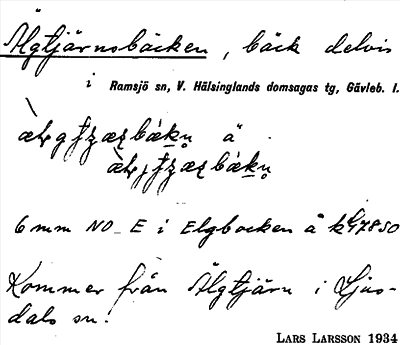 Älgtjärnsbäcken, bäck delvis
i Ramsjö sn, V. Hälsinglands domsagas tg, Gävleb. l.
å
6 mm NO_E i Elgbocken å k
Kommer från Älgtjärn i Ljus-
dals sn.
LARS LARSSON 1934